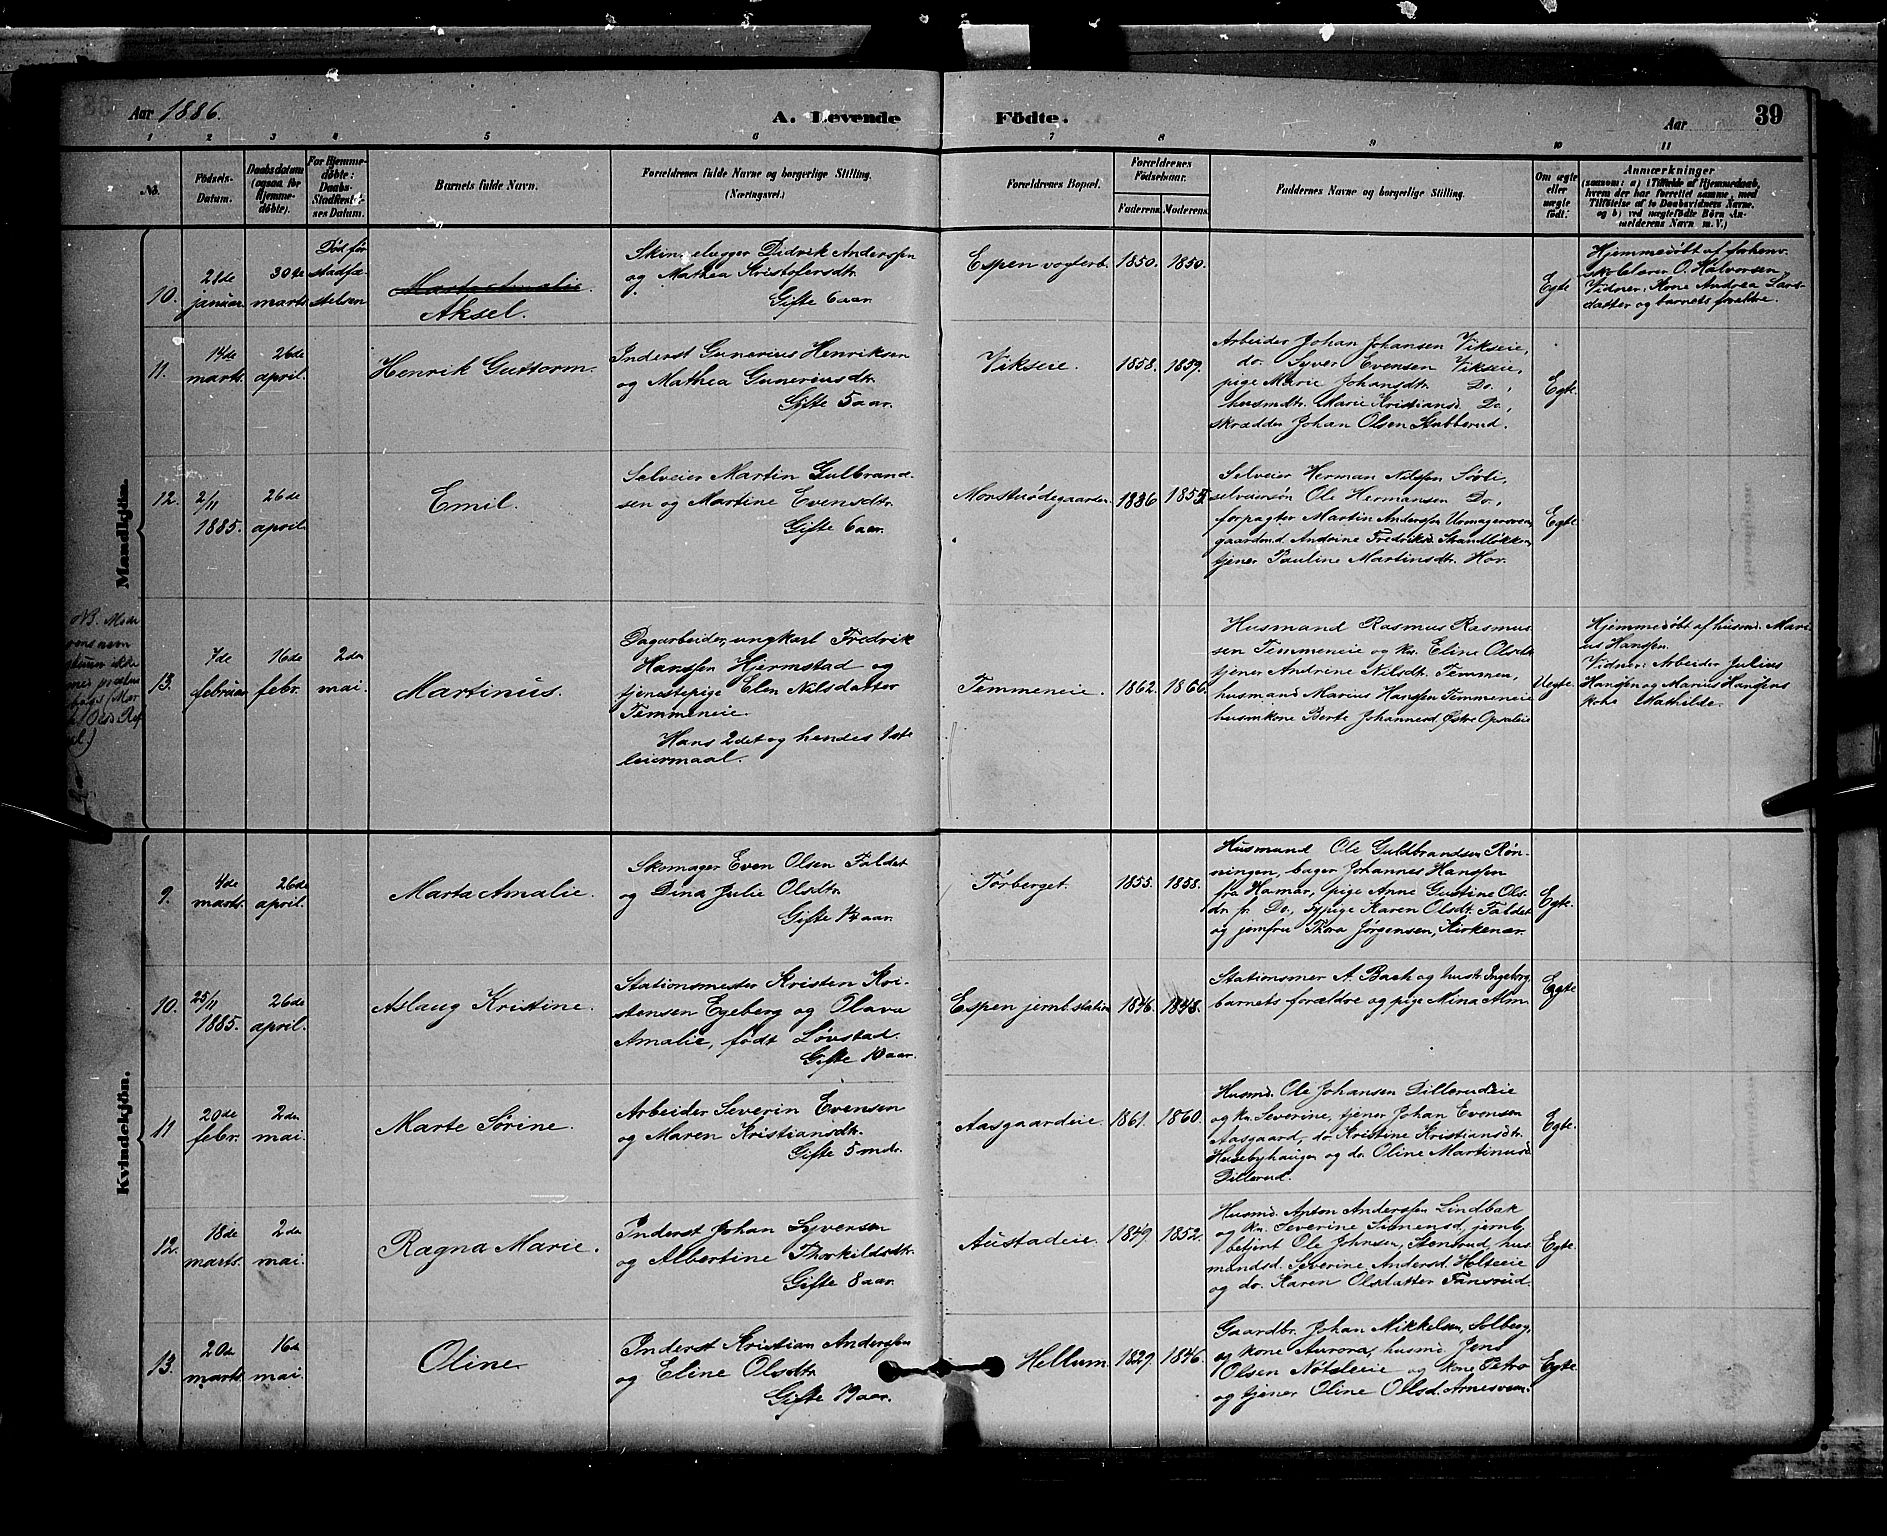 Aar 1886.
A. Levende Födte.
Aar
39
1 2 3 4 5 6 7 8 9 10 11
No.
Födsels-
Datum.
Daabsdatum
(ogsaa for
Hjemme-
døbte).
For Hjemme-
døbte:
Daabs-
Stadfæstel-
ses Datum.
Barnets fulde Navn.
Forældrenes fulde Navne og borgerlige Stilling.
(Næringsvei.)
Forældrenes Bopæl.
Forældrenes
Fødselsaar.
Faderens. Moderens.
Faddernes Navne og borgerlige Stilling.
Om ægte
eller
uægte
født.
Anmærkninger
(saasom: a) i Tilfælde af Hjemmedaab,
hvem der har forrettet samme, med
Tilføielse af to Daabsvidners Navne,
og b) ved uægtefødte Børn An-
melderens Navn m. V.)
Mandkjön.
10.
januar.
30te
marts
Død før
stadfæ-
stelsen
Marta Amalie
Aksel.
Didrik Anderssen
og Mathea Kristofersdtr.
Gifte 6 aar.
Espen vogterb.
1850. 1850.
Egte
Hjemmedøbt af forhenv.
skolelærer O. Halvorsen
Vidner: Kone Andrea Lars-
datter og barnets forældre.
11.
14de
marts.
26de
april.
Henrik Guttorm.
Inderst Gunerius Henriksen
og Mathea Guneriusdtr.
Gifte 5 aar.
Vikseie.
1858. 1859.
Arbeider Johan Johansen Vikseie,
do. Syver Evensen Vikseie,
pige Marie Johansdtr. Do.,
husmdtr. Marie Kristiansd. Do.,
skrædder Johan Olsen Stubberud.
Egte.
12.
2/11
1885.
26de
april.
Emil.
Selveier Martin Gulbrand-
sen og Martine Evensdtr.
Gifte 6 aar.
1886
Selveier Herman Nilssen Sørli,
selveiersøn Ole Hermansen Do.,
forpagter Martin Anderssen
gaardmd. Andrine Fredriksd.
tjener Pauline Martinsdtr. Hov.
Egte
13.
7de
februar
16de
febr.
2den
mai.
Martinus.
Dagarbeider, ungkarl Fredrik
Hanssen Hjermstad og
tjenestepige Elen Nilsdatter
Temmeneie.
Hans 2det og hendes 1ste
leiermaal.
Temmeneie.
1862. 1866.
Husmand Rasmus Rasmus-
sen Temmeneie og kn. Eline Olsdtr.
tjener Andrine Nilsdt. Temmen,
husmand Marius Hanssen Temmeneie
husmkone Berte Johannesd. Østre Opsaleie
Uegte.
Hjemmedøbt af husmd. Mari-
us Hanssen.
Vidner: Arbeider Julius
Hanssen og Marius Hanssens
kone Mathilde.
Kvindekjön.
9.
4de
marts.
26de
april.
Marta Amalie.
Skomager Even Olsen Faldet
og Dina Julie Olsdtr.
Gifte
Tørberget.
1855. 1858.
Husmand Ole Guldbrandsen Røn-
ningen, bager Johannes Hanssen
fra Hamar, pige Anne Gustine Ols-
dr. fr. Do., sypige Karen Olsdt. Faldet
og jomfru Thora Jørgensen, Kirkenær.
Egte.
10.
25/11
1885.
26de
april.
Aslaug Kristine.
Stationsmester Kristen Kri-
stensen Egeberg og Olava
Amalie, født Løvstad.
Gifte 10 aar.
Espen jernb. station
1846. 1848.
Stationsmer A. Bach og hustr. Ingeborg,
barnets forældre og pige Mina Alm.
Egte
11
20de
febr.
2den
mai.
Marte Sørine.
Arbeider Severin Evensen
og Maren Kristiansdtr.
Gifte 5 mdr.
Aasgaardeie.
1861. 1860.
Husmd. Ole Johansen Dillerudeie
og kn. Severine, tjener Johan Evensen
Aasgaard, do Kristine Kristiansdtr.
Husebyhaugen og do. Oline Martinusd
Dillerud.
Egte.
12.
18de
marts.
2den
mai.
Ragna Marie.
Inderst Johan Syversen
og Albertine Thorkildsdtr.
Gifte 8 aar.
Austadeie.
1849. 1852.
Husmd. Anton Anderssen Lindbak
og kn. Severine Simensd., jernb.
betjent Ole Johnsen, Stensrud, hus-
mandsd. Severine Andersd. Holteeie
og do. Karen Olsdatter Fansrud.
Egte.
13.
20de
marts
16de
mai.
Oline.
Inderst Kristian Anderssen
og Eline Olsdtr.
Gifte 19 aar.
Hellum
1829. 1846.
Gaardbr. Johan Mikkelsen, Solberg,
og kone Aurora, husmd. Jens
Olsen og kone Petra
og tjener Oline Olsd. Arnesveen.
Egte.